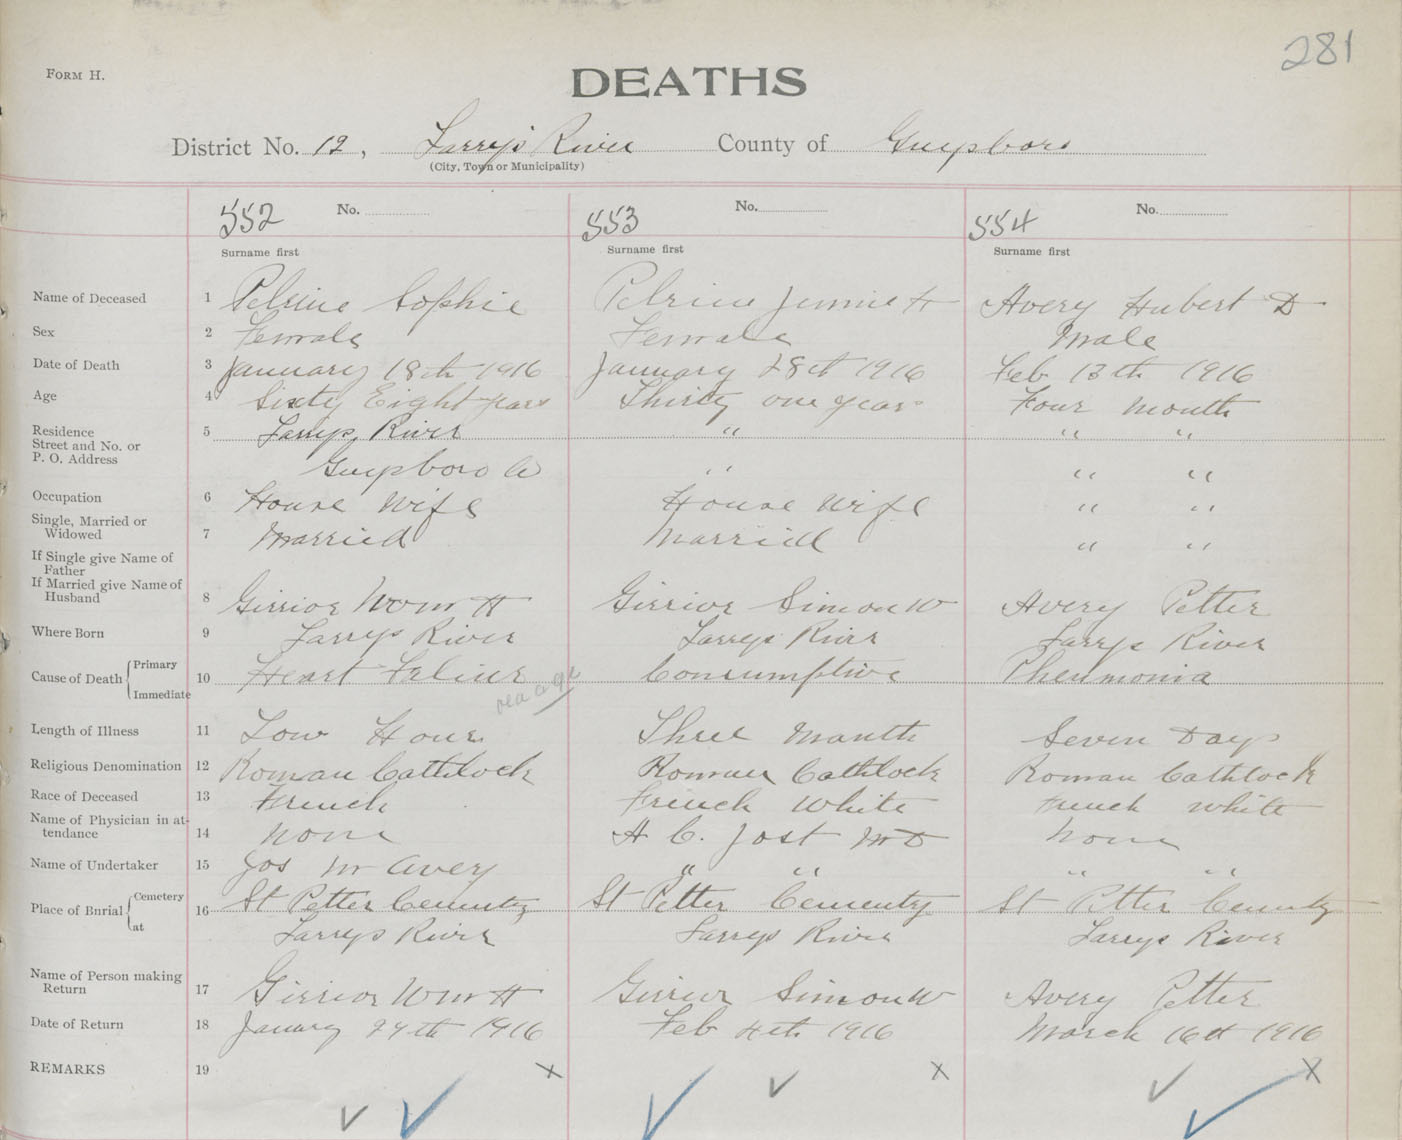 281
FORM H.
DEATHS
District No. 12, Larrys River County of Guysboro
(City, Town or Municipality)
552 No. 553 No. 554 No.
Surname first Surname first Surname first
Name of Deceased 1 Pelrine Sophie Pelrine Jennie H Avery Hubert D
Sex 2 Female Female Male
Date of Death 3 January 18th 1916 January 28th 1916 Feb 13th 1916
Age 4 Sixty Eight years Thirty one years Four Month
Residence 5 Larrys River " " "
Street and No. or
P. O. Address Guysboro Co " " "
Occupation 6 House Wife House Wife " "
Single, Married or
Widowed 7 Married Married " "
If Single give Name of
Father
If Married give Name of
Husband 8 Girrior Wm H Girrior Simon W Avery Petter
Where Born 9 Larrys River Larrys River Larrys River
Cause of Death Primary 10 Heart Faliur Consumptive Pheumonia
Immediate
Length of Illness 11 Three Month Seven Days
Religious Denomination 12 Roman Cathlock Roman Cathlock Roman Cathlock
Race of Deceased 13 French French White French White
Name of Physician in at-
tendance 14 None H C. Jost M D None
Name of Undertaker 15 Jos M Avery " " " "
Place of Burial Cemetery 16 St Petter Cementry St Petter Cementry St Petter Cementry
at Larrys River Larrys River Larrys River
Name of Person making
Return 17 Girrior Wm H Girrior Simon W Avery Petter
Date of Return 18 January 27th 1916 Feb 4th 1916 March 16th 1916
REMARKS 19 x x x